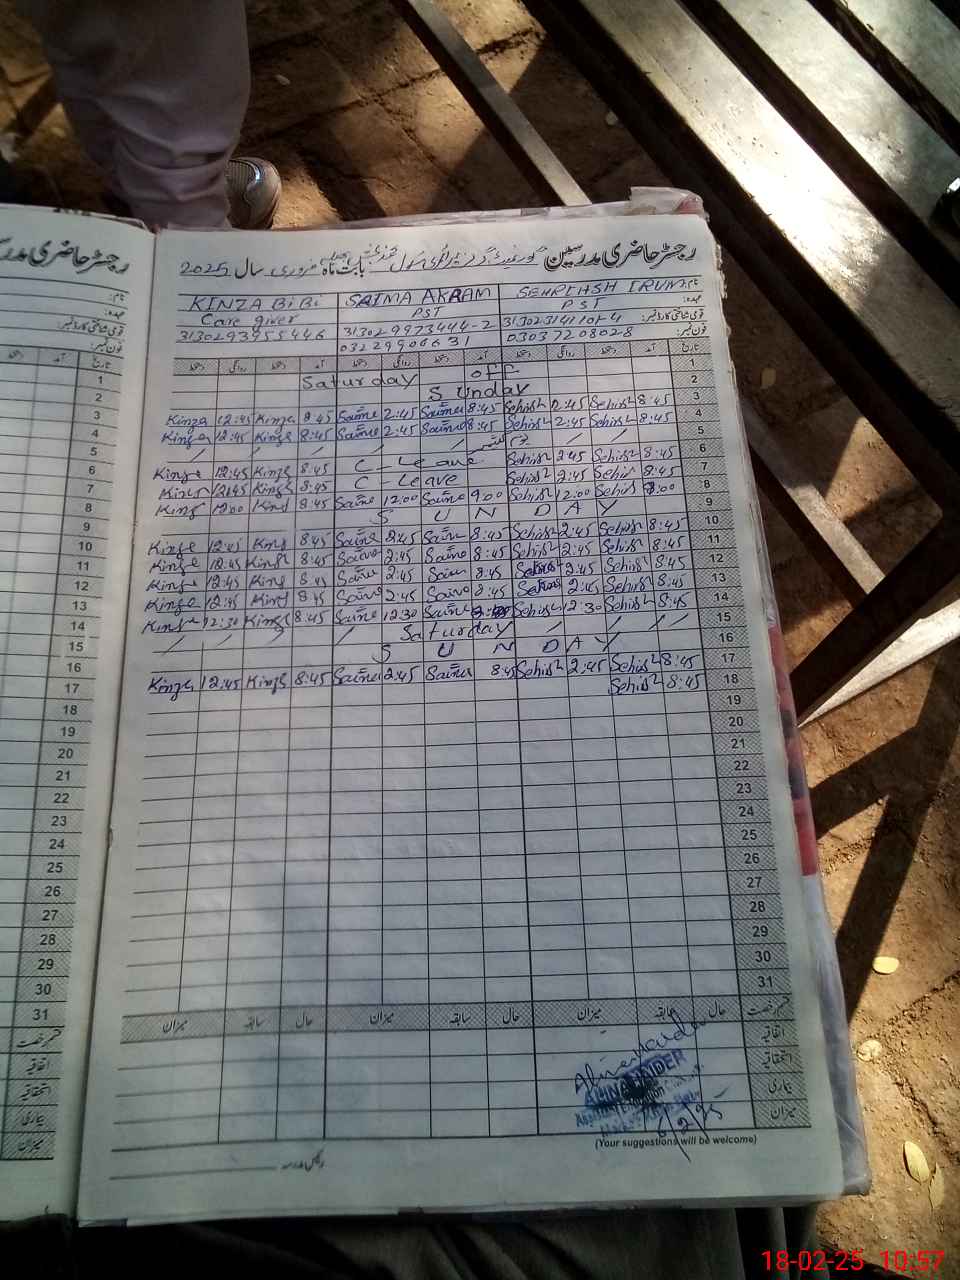 رجسٹر حاضری مدرسین گورنمنٹ گرلز ایلیمنٹری سکول بابت ماہ فروری سال 2025
نام:
SEHRISH IRUM
SAIMA AKRAM
KINZA BiBi
عہدہ:
PST
PST
Care giver
قومی شناختی کارڈ نمبر:
31302-9973444-2
3130293955446
فون نمبر:
03037208028
03229906631
تاریخ آمد دستخط روانگی دستخط آمد دستخط روانگی دستخط آمد دستخط روانگی دستخط
1 Saturday off
2 Sunday
3 Kinza 12:45 Kinza 8:45 Saima 2:45 Saima 8:45 Sehrish 2:45 Sehrish 8:45
4 Kinza 12:45 Kinza 8:45 Saima 2:45 Saima 8:45 Sehrish 2:45 Sehrish 8:45
5
6 Kinza 12:45 Kinza 8:45 C-Leave Sehrish 2:45 Sehrish 8:45
7 Kinza 12:45 Kinza 8:45 C-Leave Sehrish 2:45 Sehrish 8:45
8 Kinza 12:00 Kinza 8:45 Saima 12:00 Saima 9:00 Sehrish 12:00 Sehrish 8:00
9 S U N D A Y
10 Kinza 12:45 Kinza 8:45 Saima 2:45 Saima 8:45 Sehrish 2:45 Sehrish 8:45
11 Kinza 12:45 Kinza 8:45 Saima 2:45 Saima 8:45 Sehrish 2:45 Sehrish 8:45
12 Kinza 12:45 Kinza 8:45 Saima 2:45 Saima 8:45 Sehrish 2:45 Sehrish 8:45
13 Kinza 12:45 Kinza 8:45 Saima 2:45 Saima 8:45 Sehrish 2:45 Sehrish 8:45
14 Kinza 12:30 Kinza 8:45 Saima 12:30 Saima Sehrish 12:30 Sehrish 8:45
15 Saturday
16 S U N D A Y
17 Kinza 12:45 Kinza 8:45 Saima 2:45 Saima 8:45 Sehrish 2:45 Sehrish 8:45
18 Sehrish 8:45
19
20
21
22
23
24
25
26
27
28
29
30
31
قسم رخصت حال سابقہ میزان حال سابقہ میزان حال سابقہ میزان
اتفاقیہ
استحقاقیہ
بیماری
میزان
HAIDER
Assistant Education
(Your suggestions will be welcome)
رئیس مدرسہ
رجسٹر حاضری
آمد دستخط تاریخ
1
2
3
4
5
6
7
8
9
10
11
12
13
14
15
16
17
18
19
20
21
22
23
24
25
26
27
28
29
30
31
قسم رخصت
اتفاقیہ
استحقاقیہ
بیماری
میزان
18-02-25 10:57